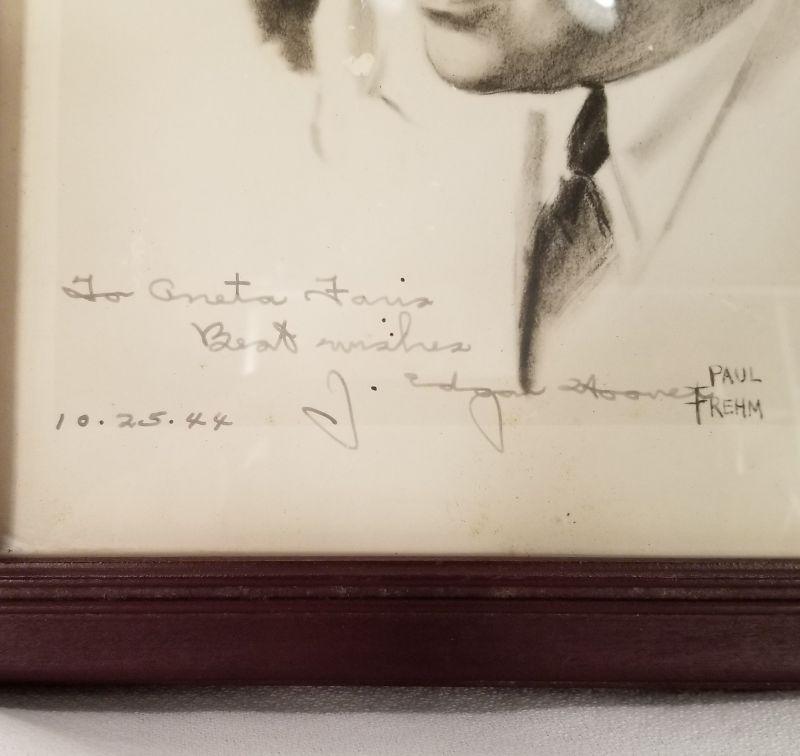 To Aneta Faris
Best wishes
J. Edgar Hoover
10.25.44
PAUL
FREHM